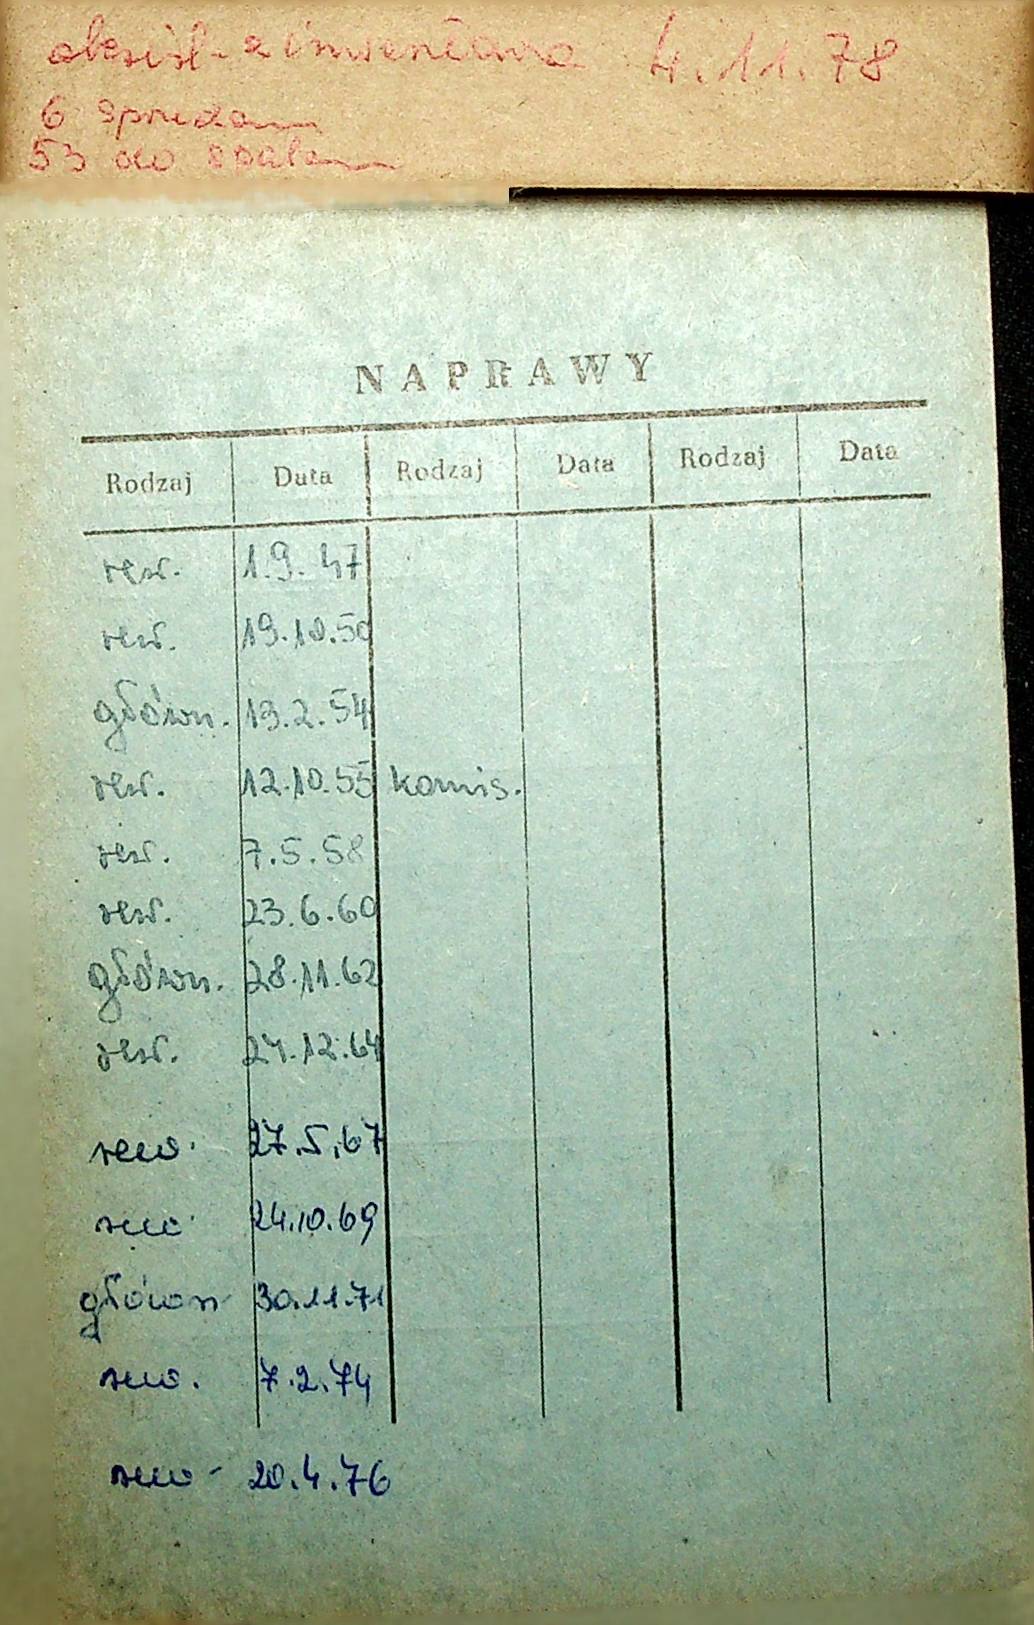 skreśl. z inwentarza 4.11.78
6 sprzedam
53 do spalam
NAPRAWY
Rodzaj Data Rodzaj Data Rodzaj Data
rew. 1.9.47
rew. 19.10.50
główn. 13.2.54
rew. 12.10.55 komis.
rew. 7.5.58
rew. 23.6.60
główn. 28.11.62
rew. 27.12.64
rew. 27.5.67
rew. 24.10.69
główn 30.11.71
rew. 7.2.74
rew - 20.4.76